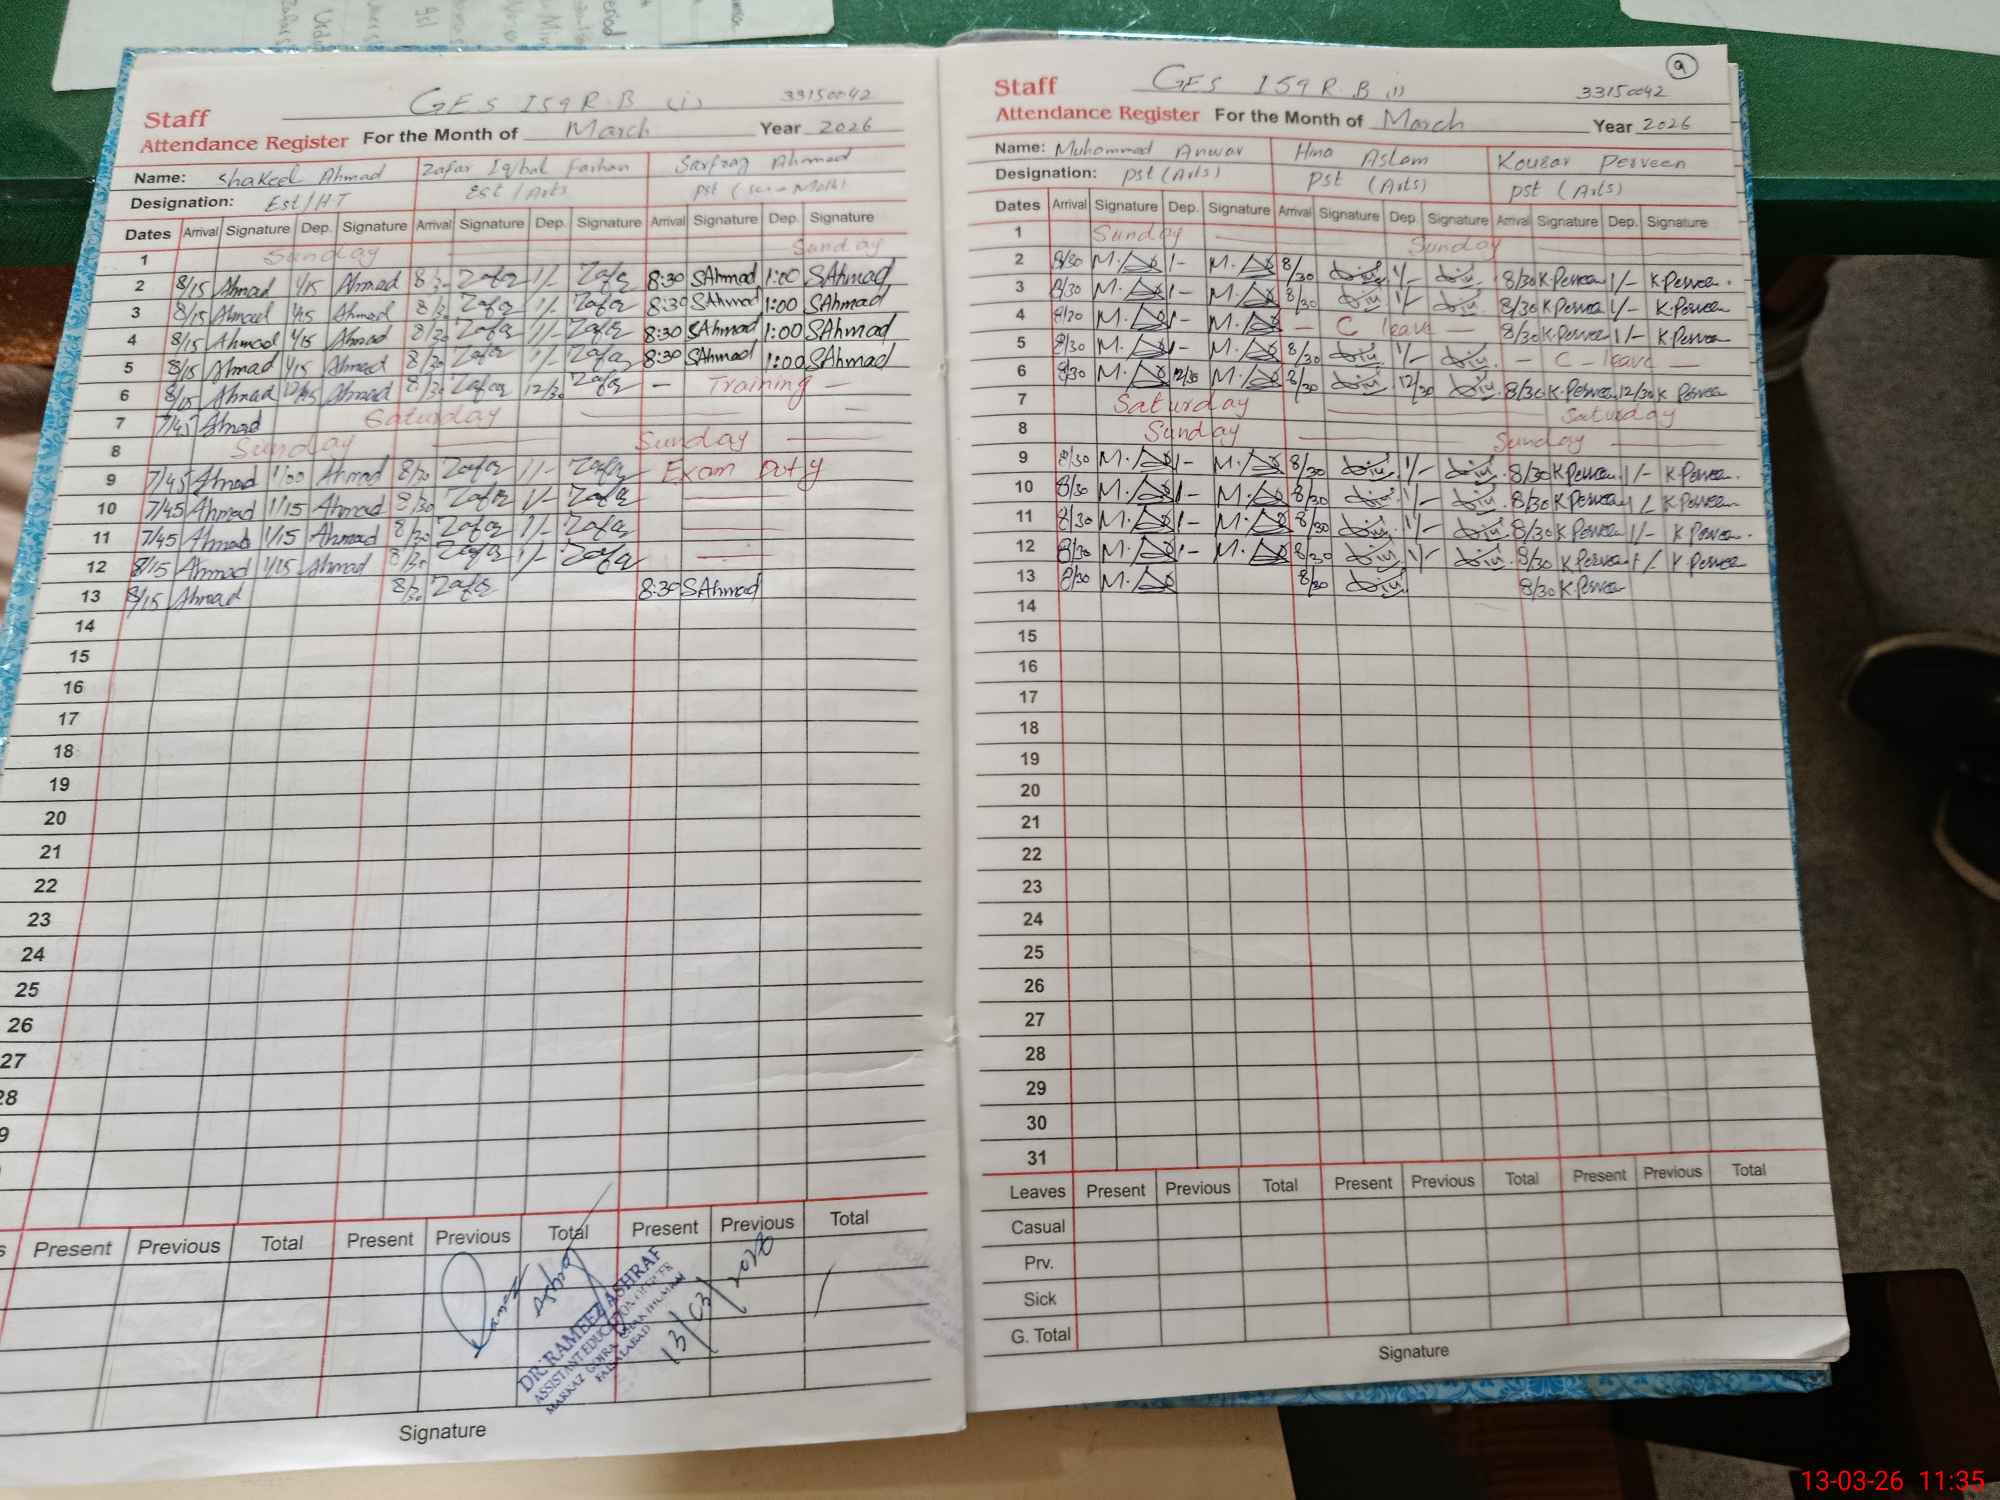 GES 159 R.B (i) 33150042
Staff
Attendance Register For the Month of March Year 2026
Name: Shakeel Ahmad Zafar Iqbal Farhan Sarfraz Ahmad
Designation: Est/HT Est/Arts Pst (
Dates Arrival Signature Dep. Signature Arrival Signature Dep. Signature Arrival Signature Dep. Signature
1 Sunday Sunday
2 8/15 Ahmad 1/15 Ahmad 8/30 Zafar 1/- Zafar 8:30 SAhmad 1:00 SAhmad
3 8/15 Ahmad 1/15 Ahmad 8/30 Zafar 1/- Zafar 8:30 SAhmad 1:00 SAhmad
4 8/15 Ahmad 1/15 Ahmad 8/30 Zafar 1/- Zafar 8:30 SAhmad 1:00 SAhmad
5 8/15 Ahmad 1/15 Ahmad 8/30 Zafar 1/- Zafar 8:30 SAhmad 1:00 SAhmad
6 8/15 Ahmad Ahmad 8/30 Zafar 12/30 Zafar - Training -
7 7/45 Ahmad Saturday
8 Sunday Sunday
9 7/45 Ahmad 1/00 Ahmad 8/30 Zafar 1/- Zafar Exam Duty
10 7/45 Ahmad 1/15 Ahmad 8/30 Zafar 1/- Zafar
11 7/45 Ahmad 1/15 Ahmad 8/30 Zafar 1/- Zafar
12 8/15 Ahmad 1/15 Ahmad 8/30 Zafar 1/- Zafar
13 8/15 Ahmad 8/30 Zafar 8:30 SAhmad
14
15
16
17
18
19
20
21
22
23
24
25
26
27
28
9
Present Previous Total Present Previous Total Present Previous Total
DR. RAMEEZ ASHRAF
ASSISTANT EDUCATION OFFICER
MARKAZ
FAISALABAD
13/03/2026
Signature
9
GES 159 R.B (i) 33150042
Staff
Attendance Register For the Month of March Year 2026
Name: Muhammad Anwar Hina Aslam Kousar Perveen
Designation: Pst (Arts) Pst (Arts) Pst (Arts)
Dates Arrival Signature Dep. Signature Arrival Signature Dep. Signature Arrival Signature Dep. Signature
1 Sunday Sunday
2 8/30 M. 1- M. 8/30 1/- 8/30 K.Perveen 1/- K.Perveen
3 8/30 M. 1- M. 8/30 1/- 8/30 K.Perveen 1/- K.Perveen
4 8/30 M. 1- M. - C leave - 8/30 K.Perveen 1/- K.Perveen
5 8/30 M. 1- M. 8/30 1/- - C - leave -
6 8/30 M. 12/30 M. 8/30 12/30 8/30 K.Perveen 12/30 K Perveen
7 Saturday Saturday
8 Sunday Sunday
9 8/30 M. 1- M. 8/30 1/- 8/30 K Perveen 1/- K Perveen
10 8/30 M. 1- M. 8/30 1/- 8/30 K Perveen 1/- K Perveen
11 8/30 M. 1- M. 8/30 1/- 8/30 K Perveen 1/- K Perveen
12 8/30 M. 1- M. 8/30 1/- 8/30 K Perveen 1/- K Perveen
13 8/30 M. 8/30 8/30 K.Perveen
14
15
16
17
18
19
20
21
22
23
24
25
26
27
28
29
30
31
Leaves Present Previous Total Present Previous Total Present Previous Total
Casual
Prv.
Sick
G. Total
Signature
13-03-26 11:35